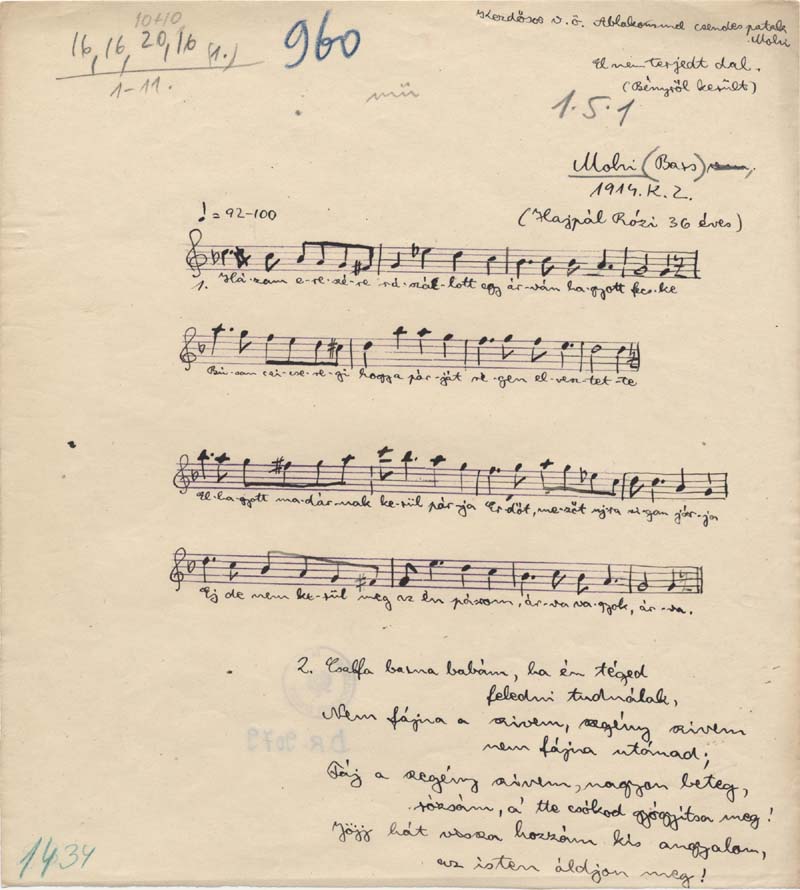 10+10
16, 16, 20, 16 (1.)
1-11.
960
mü
Kezdősor v.ö. Ablakomnal csendes patak
Mohi
El nem terjedt dal.
(Bényről került)
1.5.1
Mohi (Bars)
1914. K. Z.
(Hajpál Rózi 36 éves)
♩ = 92-100
1. Há-zam e-re-szé-re rá-szál-lott egy ár-ván ha-gyott fecs-ke
Bú-san csi-cse-re-gi hogy a pár-ját ré-gen el-vesz-tet-te
El-ha-gyott ma-dár-nak ke-rül pár-ja Erdőt, me-zőt ujra vi-gan jár-ja
Ej de nem ke-rül meg az én párom, ár-va va-gyok, ár-va.
2. Csalfa barna babám, ha én téged
feledni tudnálak,
Nem fájna a szivem, szegény szivem
nem fájna utánad;
Fáj a szegény szivem, nagyon beteg,
rózsám, a' tte csókod gyógyítsa meg!
Jöjj hát vissza hozzám kis angyalom,
az isten áldjon meg!
1434